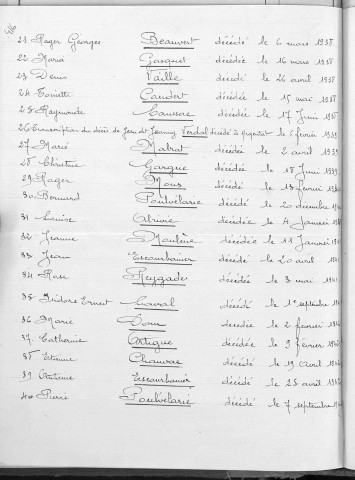 21 Roger Georges Beauvert décédé le 6 mars 1938
22 Maria Gasquet décédée le 16 mars 1938
23 Denis Vaille décédé le 26 avril 1938
24 Toinette Caudert décédée le 15 mai 1938
25 Raymonde Caussac décédée le 17 Juin 1938
26 Transcription du décès de Jean décédé à le 6 février 1939
27 Marie Mabrat décédée le 2 avril 1939
28 Christine Gargue décédée le 18 Juin 1939
29 Roger Mons décédé le 13 février
30 Bernard Poulvelarie décédé le 20 décembre
31 Louise décédée le 4 Janvier
32 Jeanne Moulène décédée le 11 Janvier
33 Jean Escourbanier décédé le 20 avril
34 Rose Reygade décédée le 3 mai
35 Isidore Ernest Laval décédé le 1er septembre
36 Marie Dom décédée le 2 février
37 Catherine Artigue décédée le 9 février
38 Etienne Chauvac décédé le 19 avril
39 Antoine Escourbanier décédé le 25 avril
40 Pierre Poulvelarié décédé le 7 septembre